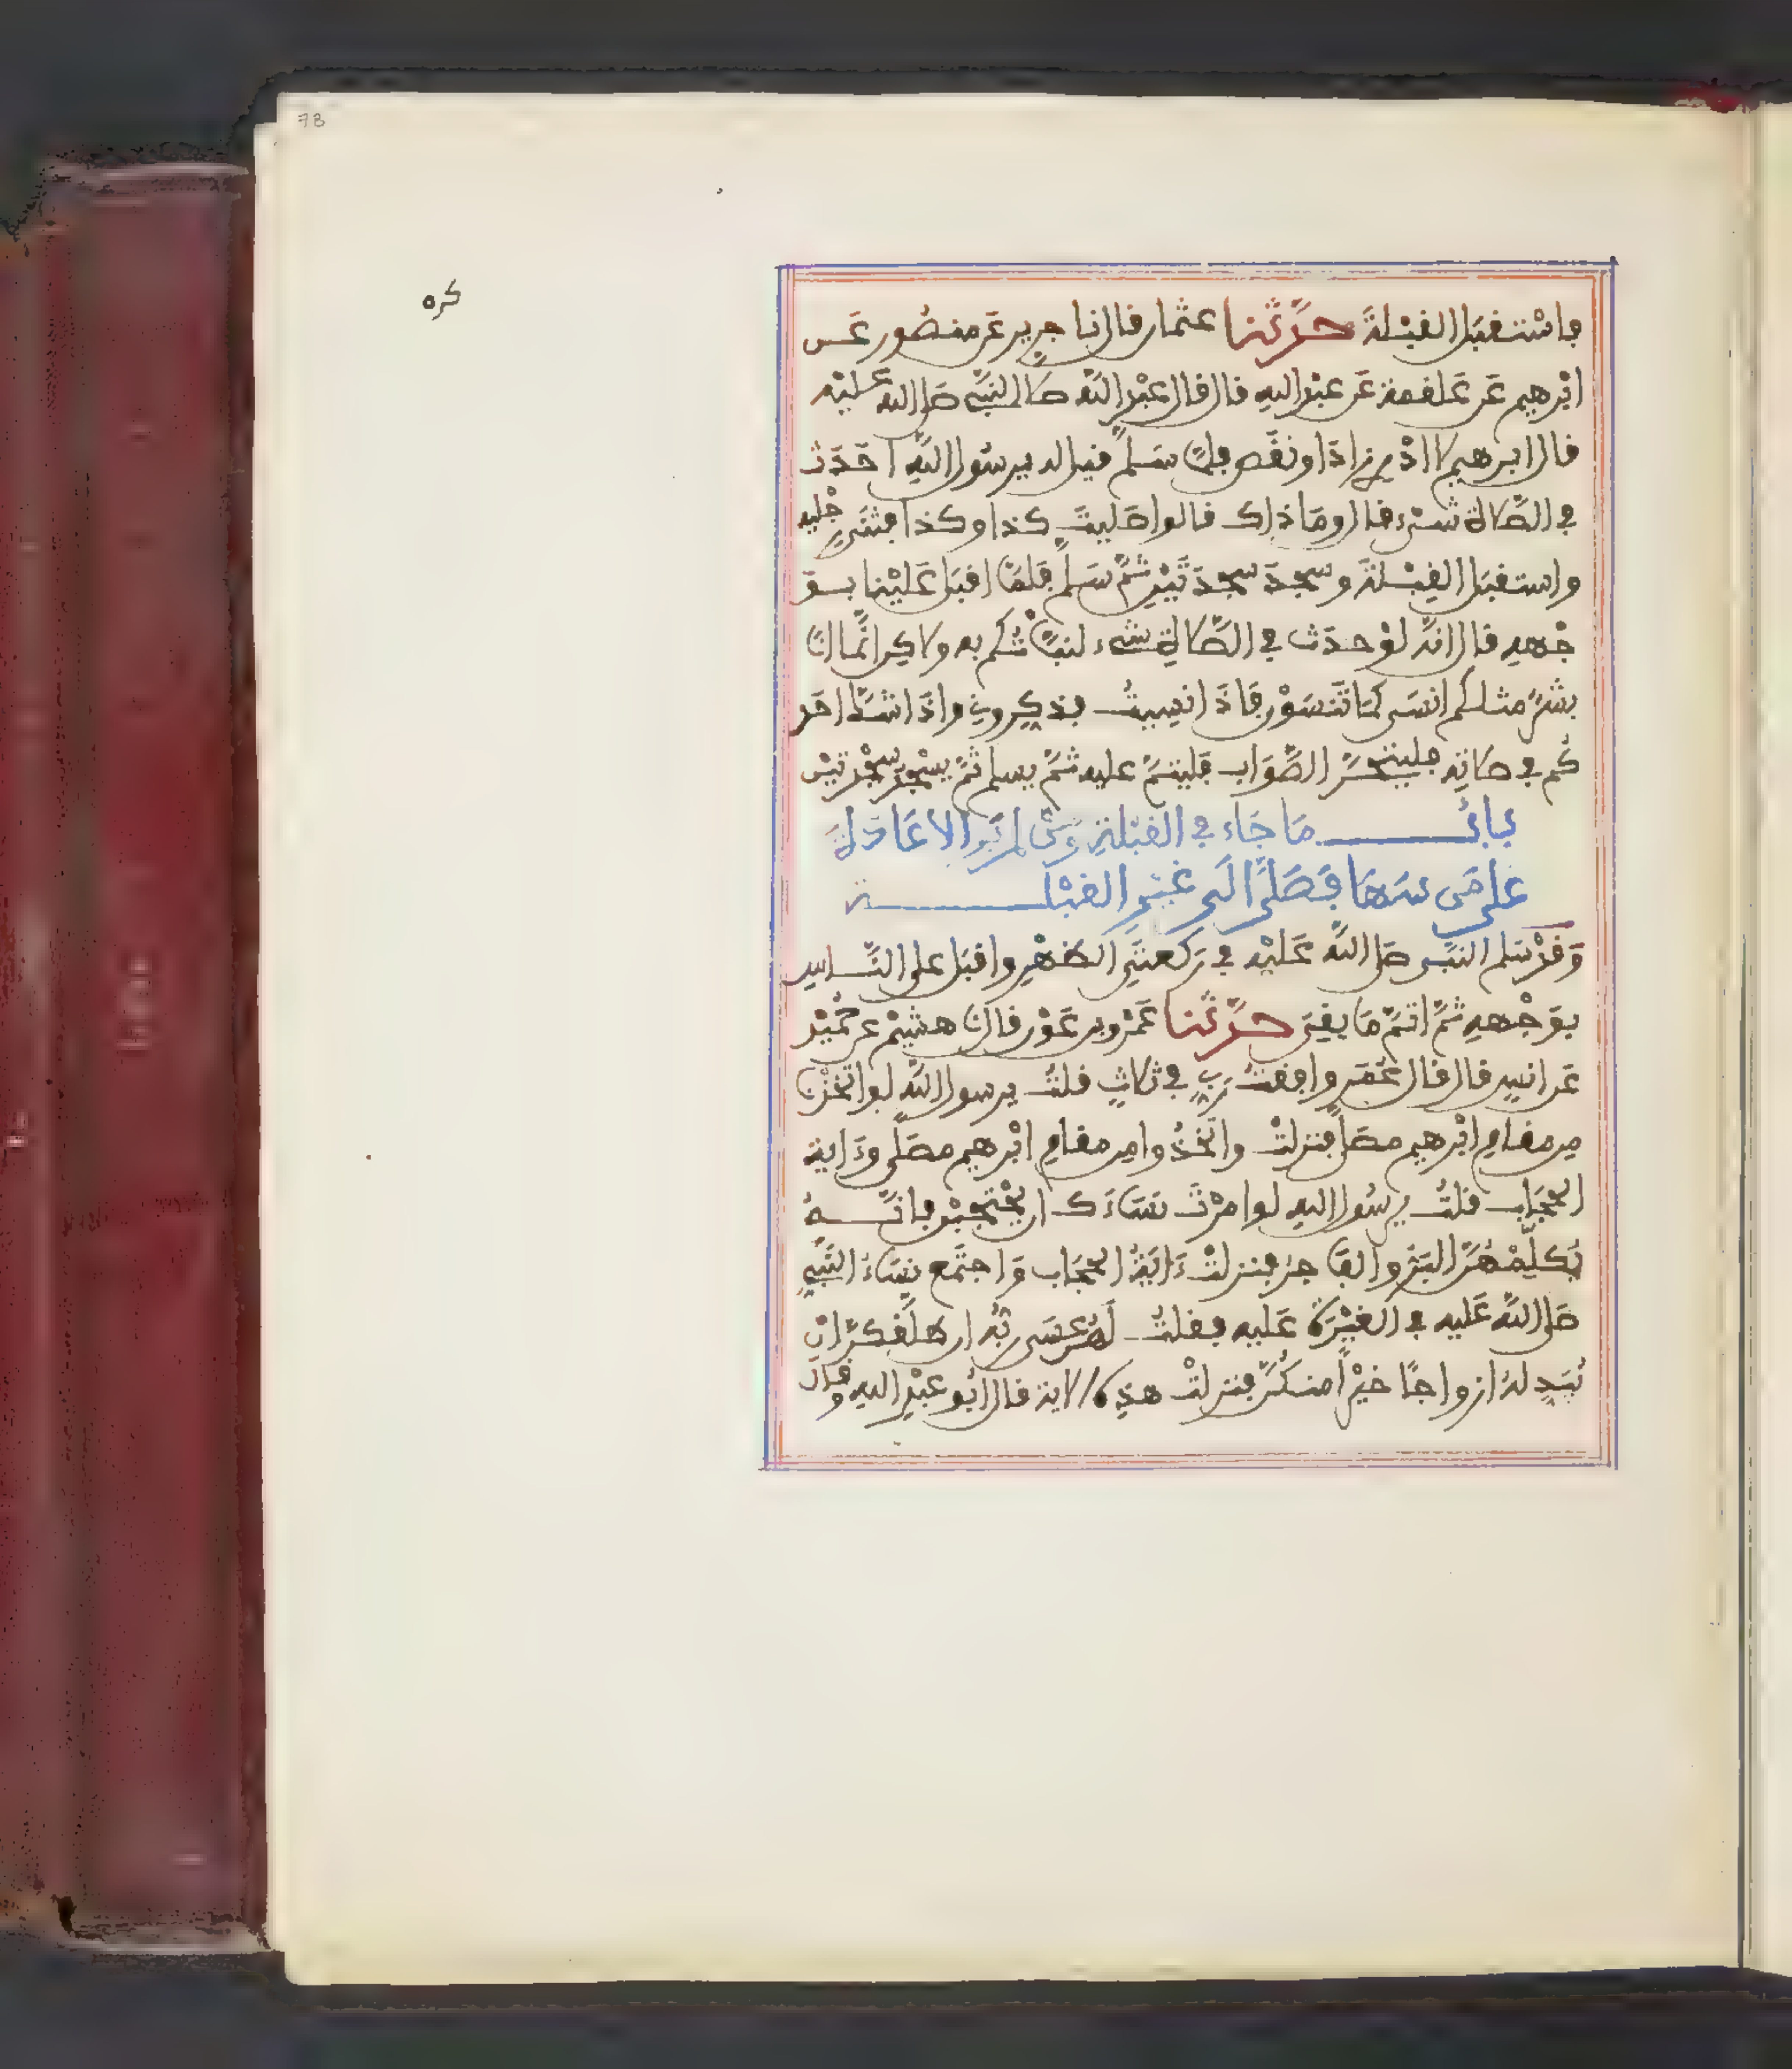 78
كره
فاستقبل القبلة حدثنا عثمان قال نا جرير عن منصور عن
ابرهيم عن علقمة عن عبد الله قال قال عبد الله صلى النبي صلى الله عليه
قال ابرهيم لا ادري زاد او نقص فلما سلم قيل له يرسول الله احدث
في الصلاة شيء قال وما ذاك قالوا صليت كذا وكذا فثنى رجليه
واستقبل القبلة وسجد سجدتين ثم سلم فلما اقبل علينا بو
جهه قال انه لو حدث في الصلاة شيء لنبأتكم به ولاكن انما انا
بشر مثلكم انسى كما تنسون فاذا نسيت فذكروني واذا شك احد
كم في صلاته فليتحر الصواب فليتم عليه ثم يسلم ثم يسجد سجدتين
باب ما جاء في القبلة ومن لم ير الاعادة
على من سها فصلى الى غير القبلة
وقد سلم النبي صلى الله عليه في ركعتي الظهر واقبل على الناس
بوجهه ثم اتم ما بقي حدثنا عمرو بن عون قال نا هشيم عن حميد
عن انس قال قال عمر وافقت ربي في ثلاث قلت يرسول الله لو اتخذنا
من مقام ابرهيم مصلى فنزلت واتخذوا من مقام ابرهيم مصلى وءاية
الحجاب قلت يرسول الله لو امرت نساءك ان يحتجبن فانه
يكلمهن البر والفاجر فنزلت ءاية الحجاب واجتمع نساء النبي
صلى الله عليه في الغيرة عليه فقلت لهن عسى ربه ان طلقكن ان
يبدله ازواجا خيرا منكن فنزلت هذه الاية قال ابو عبد الله وقال